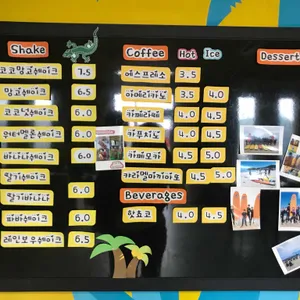 Shake
코코망고쉐이크 7.5
망고쉐이크 6.5
코코넛쉐이크 6.0
워터멜론쉐이크 6.0
바나나쉐이크 6.0
딸기쉐이크
딸기바나나 6.0
파파쉐이크 6.0
레인보우쉐이크 6.5
Coffee Hot Ice
에스프레소 3.5
아메리카노 3.5 4.0
카페라떼 4.0 4.5
카푸치노 4.0 4.5
카페모카 4.5 5.0
카라멜마끼아또 4.5 5.0
Beverages
핫쵸코 4.0 4.5
Dessert